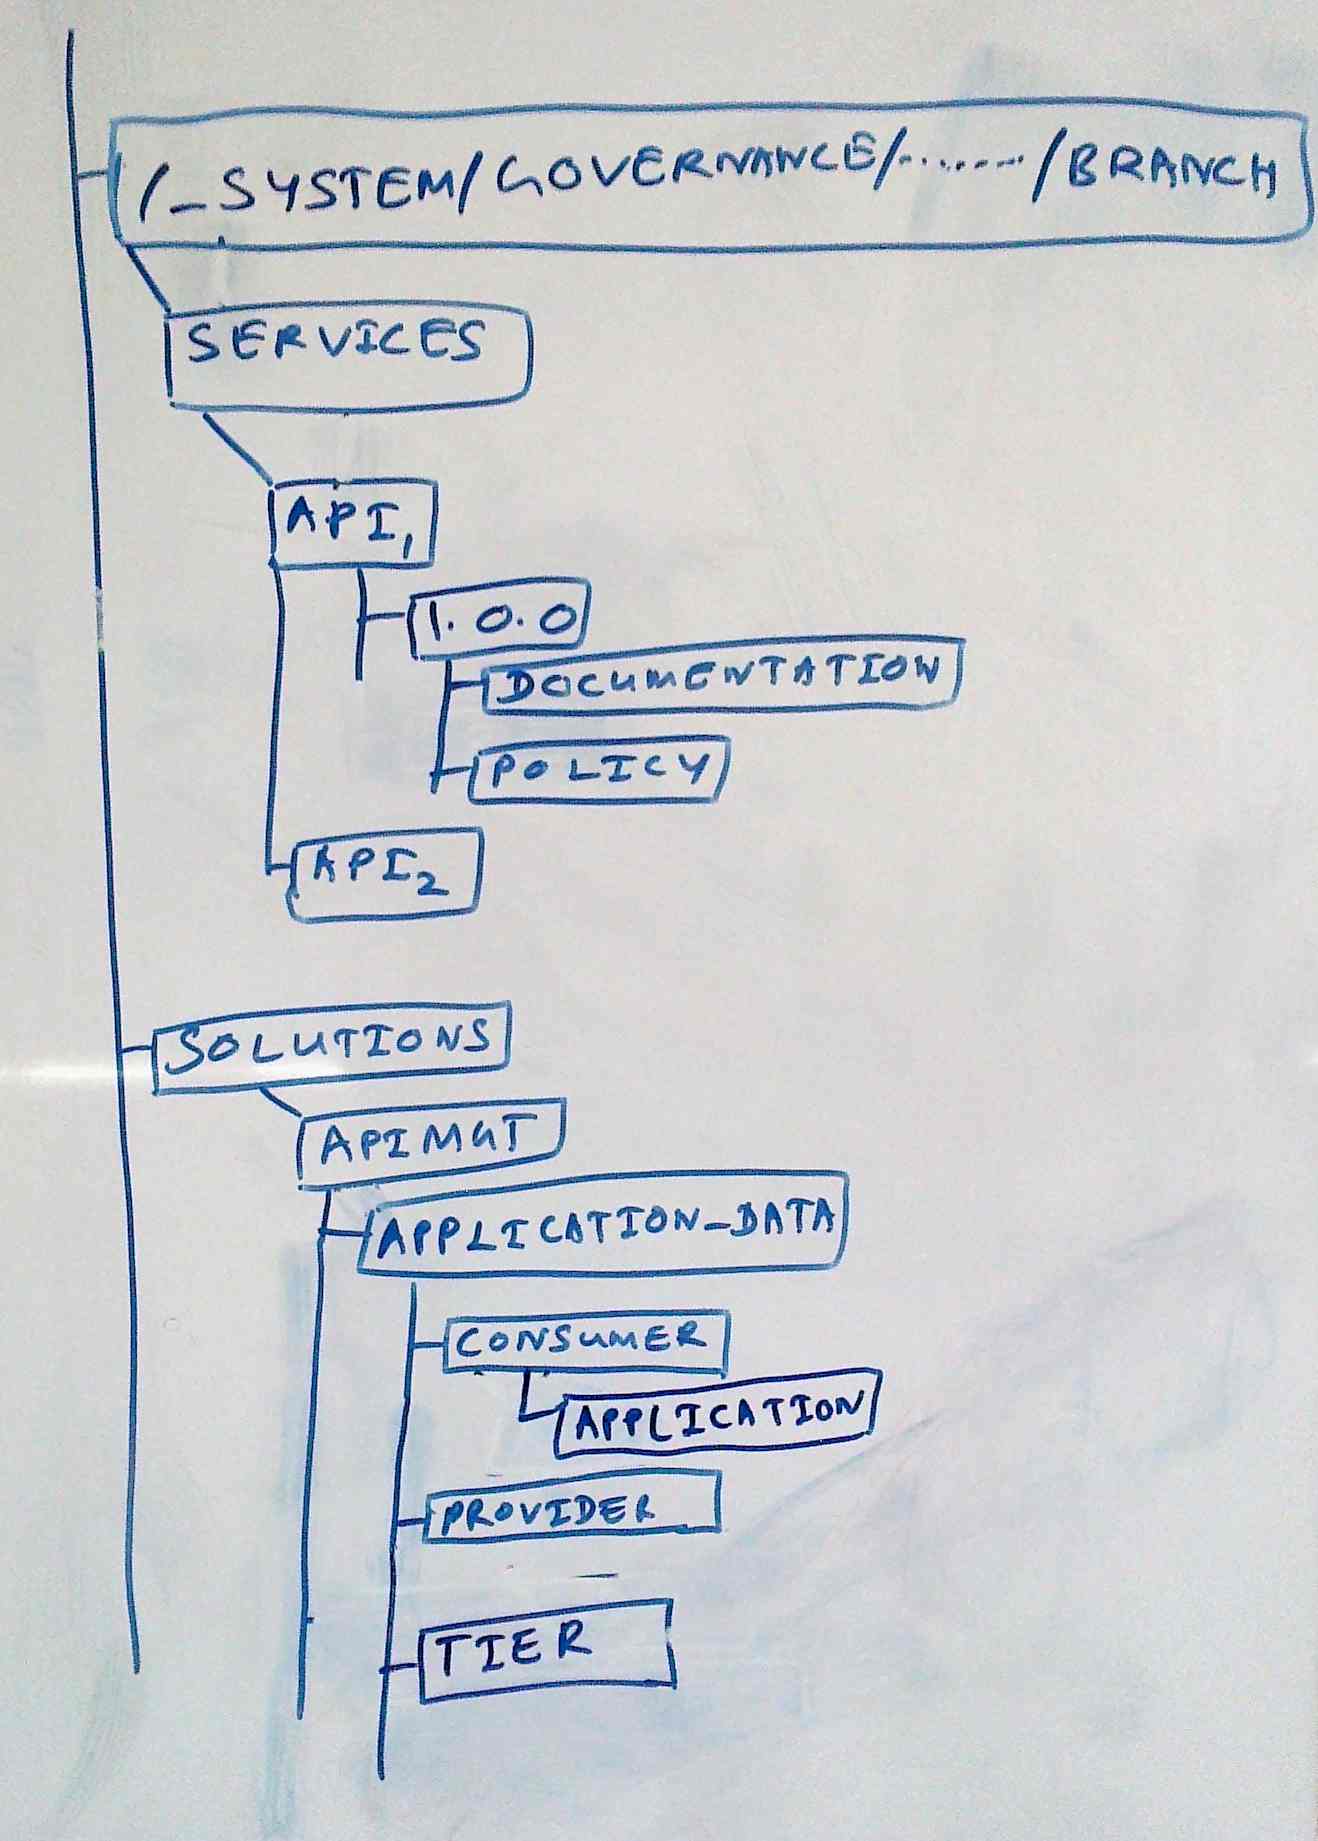 /_SYSTEM/GOVERNANCE/......./BRANCH
SERVICES
API1
1.0.0
DOCUMENTATION
POLICY
API2
SOLUTIONS
APIMGT
APPLICATION_DATA
CONSUMER
APPLICATION
PROVIDER
TIER